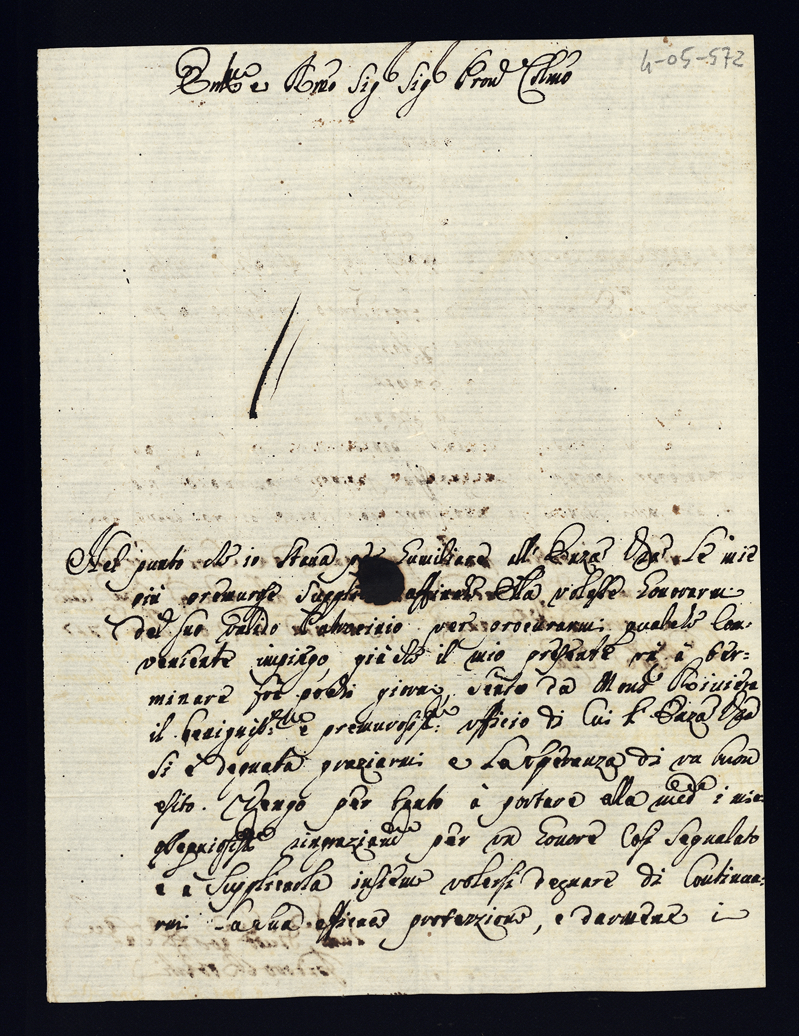 4-05-572
Emo e Rmo Sig Sig Pron Colmo
Nel punto che io stava per humiliare all' Emza Vra le mie
più premurose suppli affinche Ella volesse honorarmi
del suo valido Patrocinio per procurarmi qualche con-
veniente impiego, già che il mio presente và à ter-
minare frà pochi giorni, sento da Mons Riviera
il benignissmo e premurosissmo ufficio di cui l' Emza Vra
si è degnata graziarmi e la speranza di un buon
esito. Vengo per tanto à portare alla medma i miei
ossequiosissmi ringraziamti per un honore così segnalato
e à supplicarla insieme volersi degnare di continuar-
mi la sua efficace protezzione, e darmene i